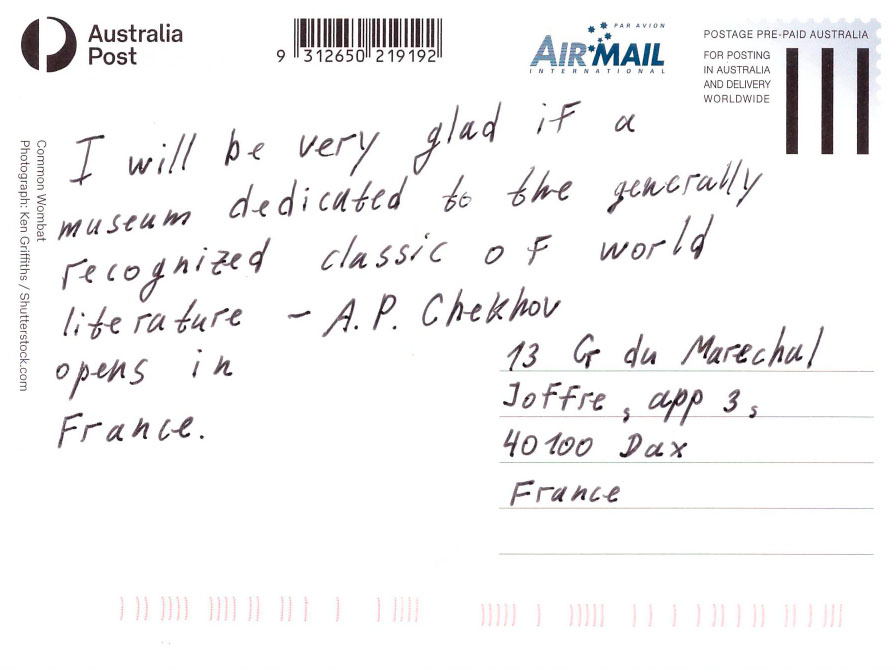 Australia
Post
9 312650 219192
PAR AVION
AIR MAIL
INTERNATIONAL
POSTAGE PRE-PAID AUSTRALIA
FOR POSTING
IN AUSTRALIA
AND DELIVERY
WORLDWIDE
Common Wombat
Photograph: Ken Griffiths / Shutterstock.com
I will be very glad if a
museum dedicated to the generally
recognized classic of world
literature – A.P. Chekhov
opens in
France.
13 Cr du Marechal
Joffre, app 3,
40100 Dax
France